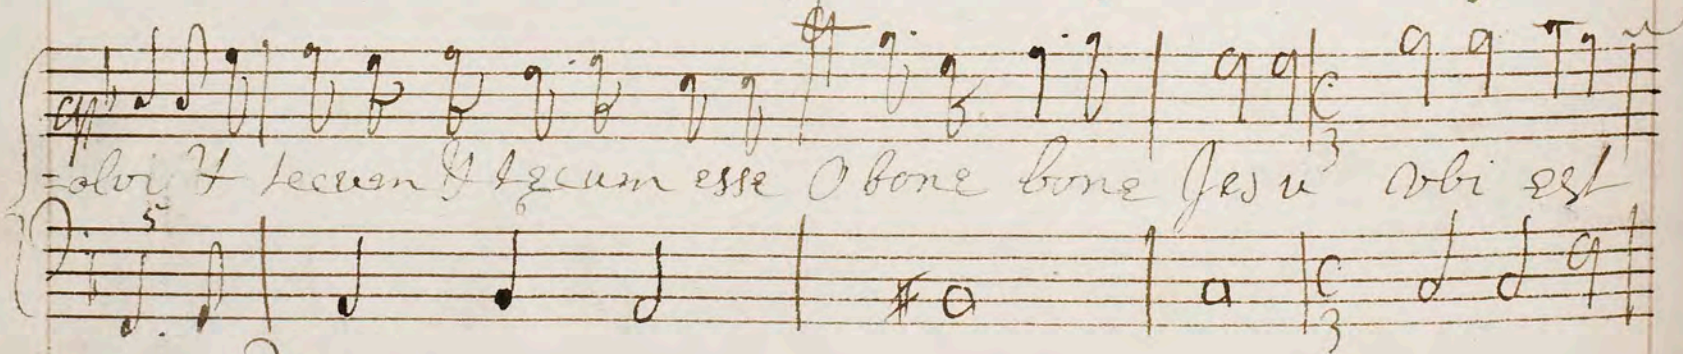 =olvi & tecum & tecum esse O bone bone Jesu vbi est
5
C 3
C 3